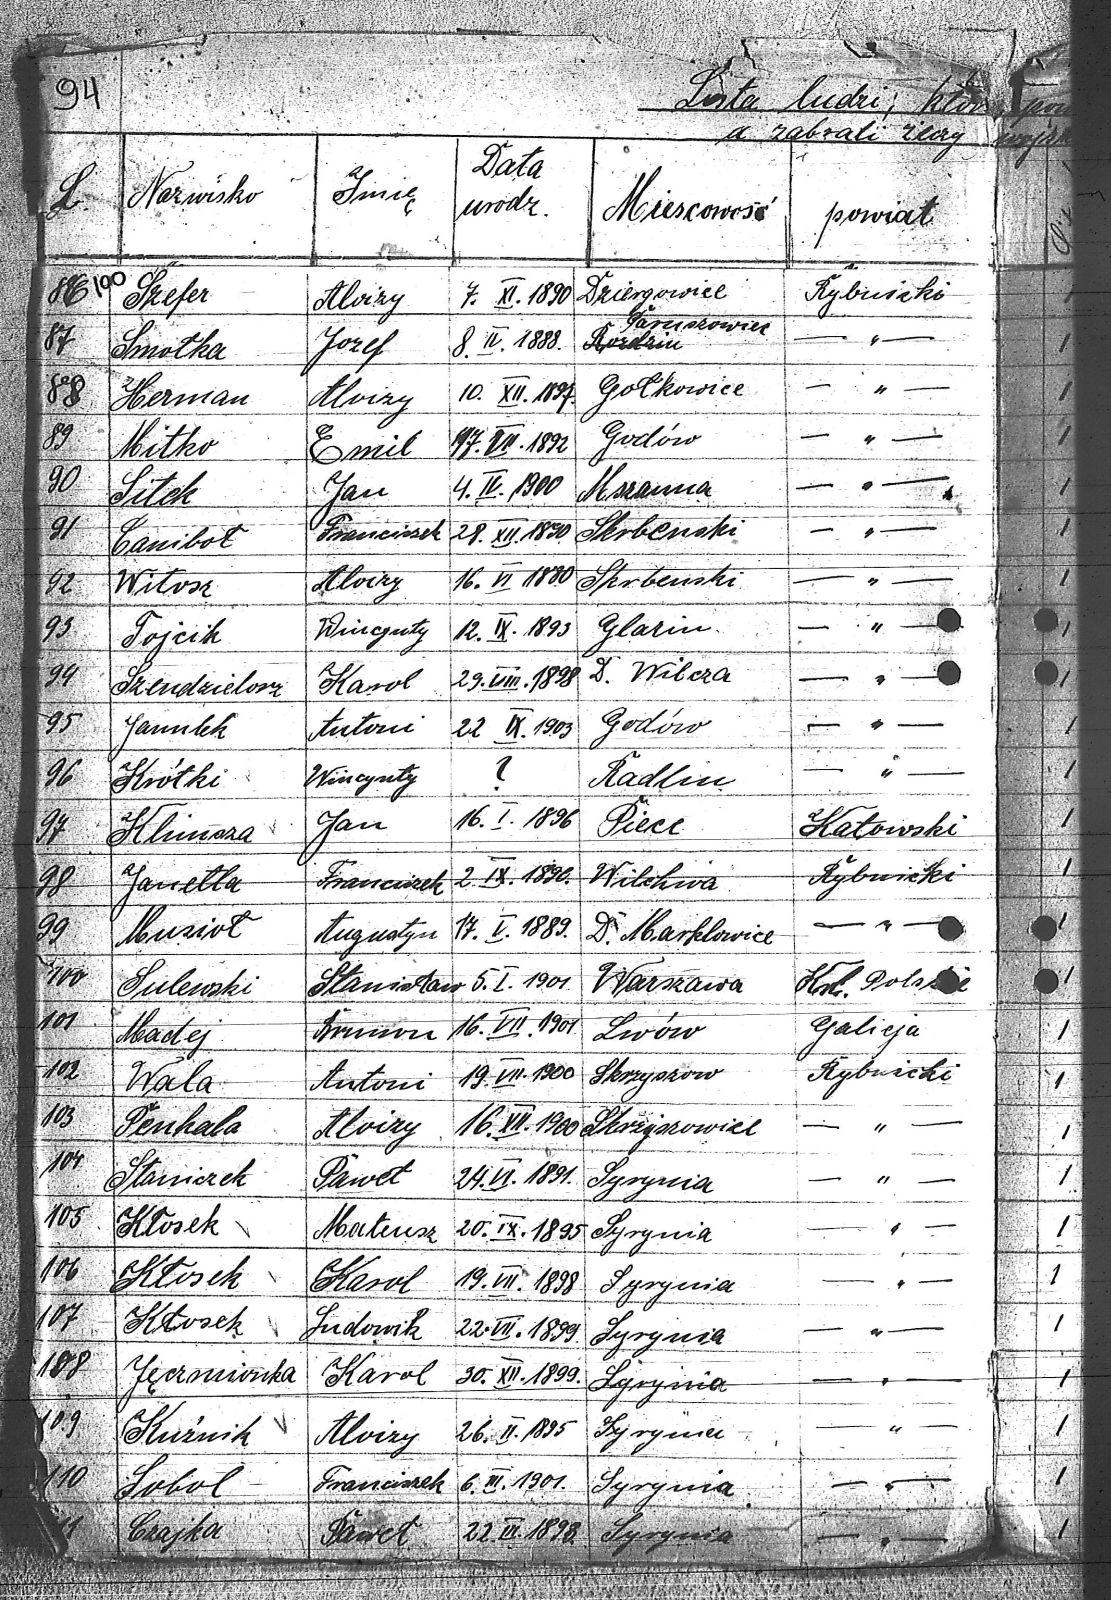 94
Lista ludzi, którz
a zabrali rzeczy
L. Nazwisko Imię Data urodz. Miescowość powiat
86 100 Szefer Alojzy 7. XI. 1890 Dziergowice Rybnicki
Paruszowiec
87 Smotka Jozef 8. II. 1888. Rozdzin — " —
88 Herman Alojzy 10. XII. 1897. Gołkowice — " —
89 Mitko Emil 17. VII. 1892 Godów — " —
90 Sitek Jan 4. IV. 1900 Mszanna — " —
91 Canibot Franciszek 28. XII. 1890 Skrbenski — " —
92 Witosz Alojzy 16. VI 1880 Skrbenski — " —
93 Tojcik Wincynty 12. IX. 1893 Glazin — " —
94 Szendzielorz Karol 29. VIII. 1898 D. Wilcza — " —
95 Janulek Antoni 22 IX. 1903 Godów — " —
96 Krótki Wincynty ? Radlin — " —
97 Klimsza Jan 16. I. 1896 Piece Katowski
98 Janetta Franciszek 2. IX. 1890. Wilchwa Rybnicki
99 Musioł Augustyn 17. V. 1889. D. Marklowice — " —
100 Sulewski Stanisław 5. I. 1901 Warszawa Król. Polskie
101 Madej Brunon 16. VII. 1901 Lwów Galicja
102 Wala Antoni 19. VII. 1900 Skrzyszow Rybnicki
103 Penkala Alojzy 16. XII. 1900 Skrzyszowiec — " —
104 Staniczek Paweł 24. VI. 1891. Syrynia — " —
105 Kłosek Mateusz 20. IX. 1895 Syrynia — " —
106 Kłosek Karol 19. VII. 1898 Syrynia — " —
107 Kłosek Ludowik 22. VII. 1899 Syrynia — " —
108 Jęczmionka Karol 30. XII. 1899. Syrynia — " —
109 Kuźnik Alojzy 26. II. 1895 Syrynia "
110 Sobol Franciszek 6. III. 1901. Syrynia — " —
11 Czajka Paweł 22. III. 1898 Syrynia — " —